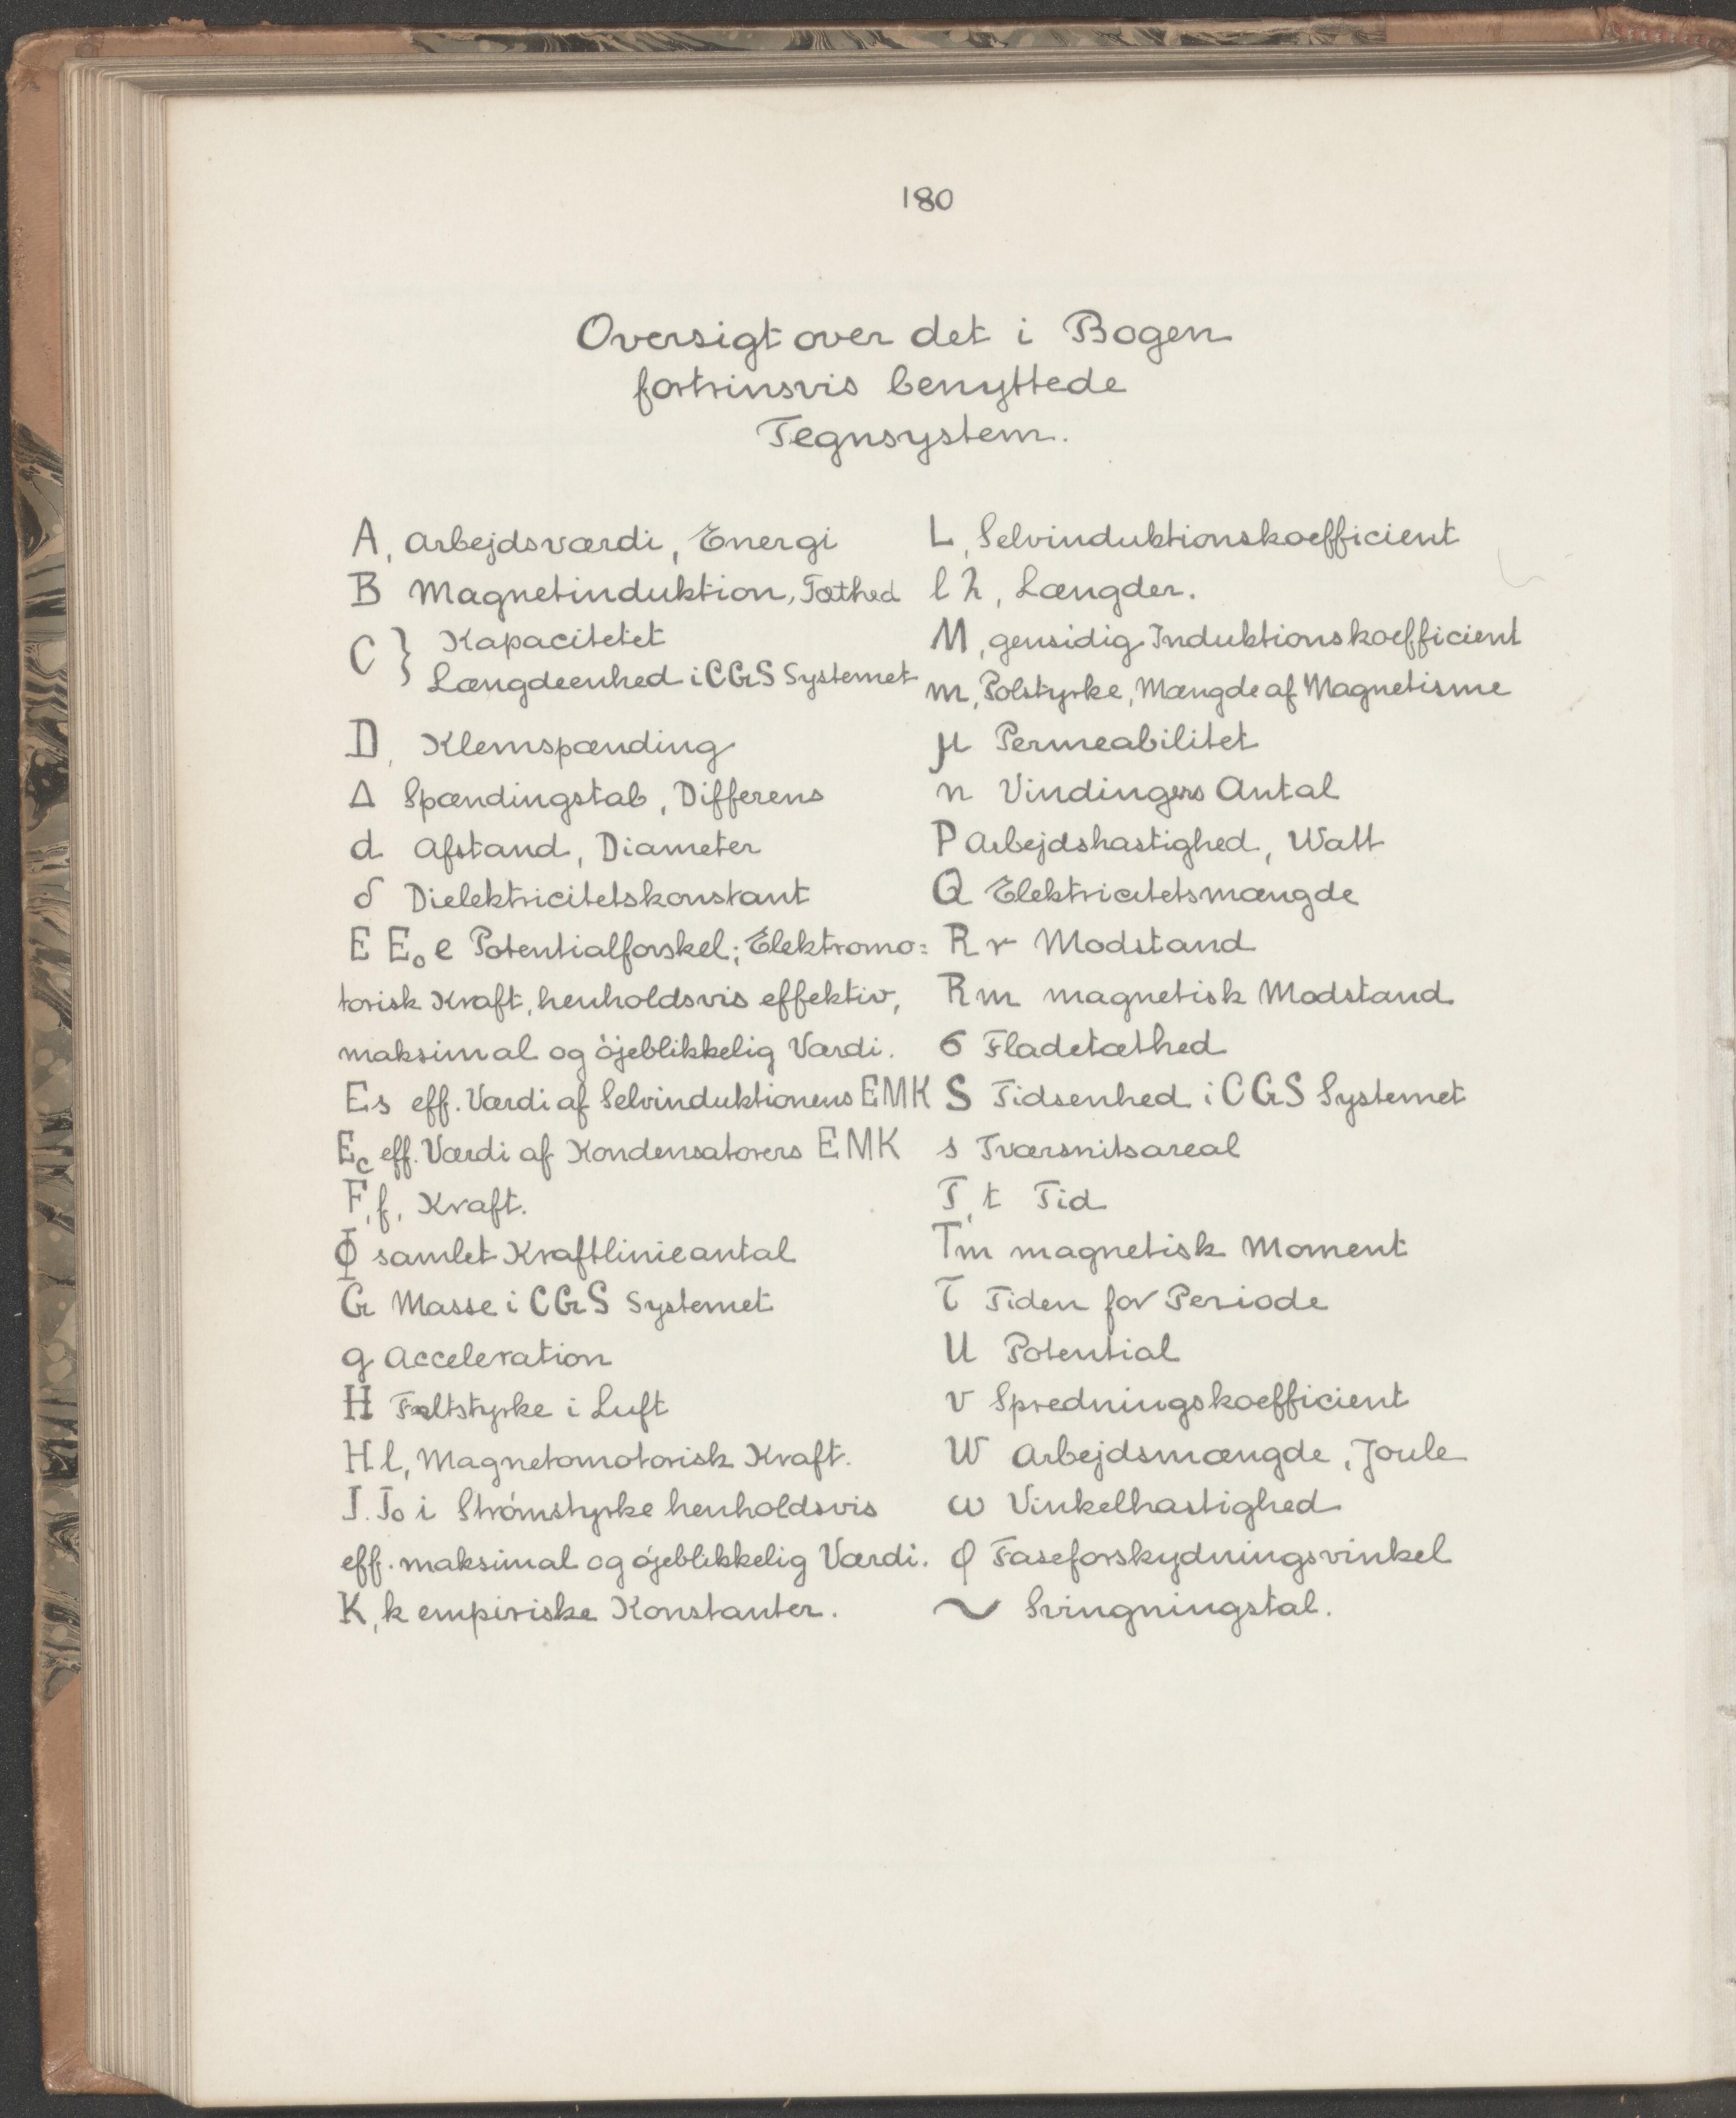 180
Oversigt over det i Bogen
fortrinsvis benyttede
Tegnsystem.
A, Arbejdsværdi, Energi
B Magnetinduktion, Tæthed
C } Kapacitetet
Længdeenhed i CGS Systemet
D, Klemspænding
Δ Spændingstab, Differens
d Afstand, Diameter
δ Dielektricitetskonstant
E E₀ e Potentialforskel; Elektromo=
torisk Kraft, henholdsvis effektiv,
maksimal og öjeblikkelig Værdi.
Es eff. Værdi af Selvinduktionens EMK
Ec eff. Værdi af Kondensatorers EMK
F, f, Kraft.
Φ samlet Kraftlinieantal
G Masse i CGS Systemet
g Acceleration
H Feltstyrke i Luft
H l, Magnetomotorisk Kraft.
J. J₀ i Strömstyrke henholdsvis
eff. maksimal og öjeblikkelig Værdi.
K, k empiriske Konstanter.
L, Selvinduktionskoefficient
l λ, Længder.
M, gensidig Induktionskoefficient
m, Polstyrke, Mængde af Magnetisme
μ Permeabilitet
n Vindingers Antal
P Arbejdshastighed, Watt
Q Elektricitetsmængde
R r Modstand
Rm magnetisk Modstand
σ Fladetæthed
S Tidsenhed i CGS Systemet
s Tværsnitsareal
T, t Tid
Tm magnetisk Moment
τ Tiden for Periode
U Potential
v Spredningskoefficient
W Arbejdsmængde, Joule
ω Vinkelhastighed
φ Faseforskydningsvinkel
~ Svingningstal.